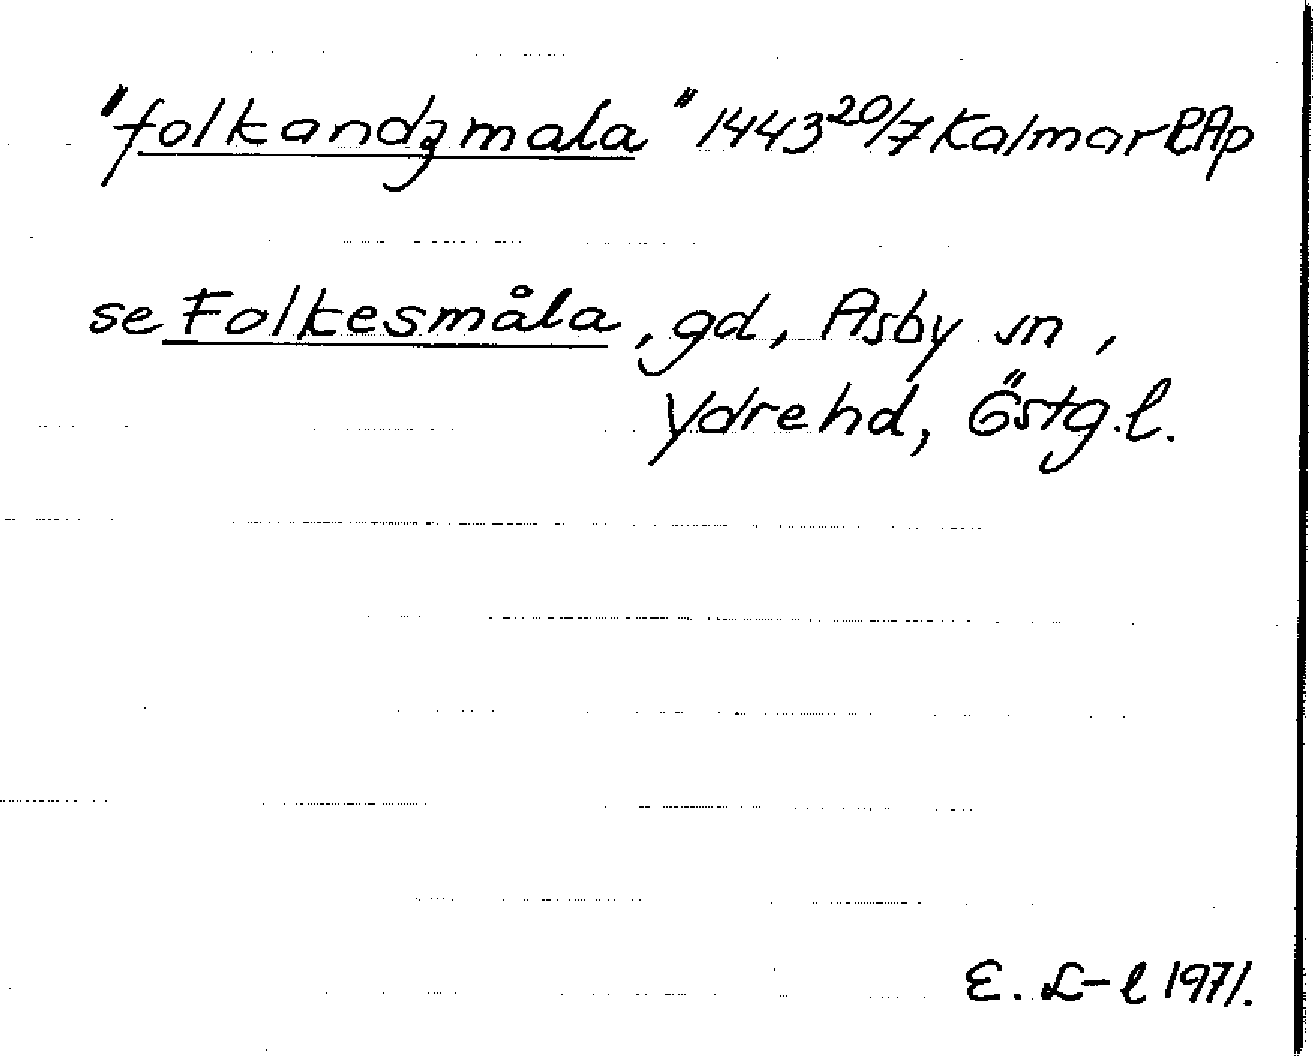 "folkandzmala" 1443 20/7 Kalmar RAp
se Folkesmåla, gd, Asby sn,
Ydre hd, Östg.l.
E. L-l 1971.